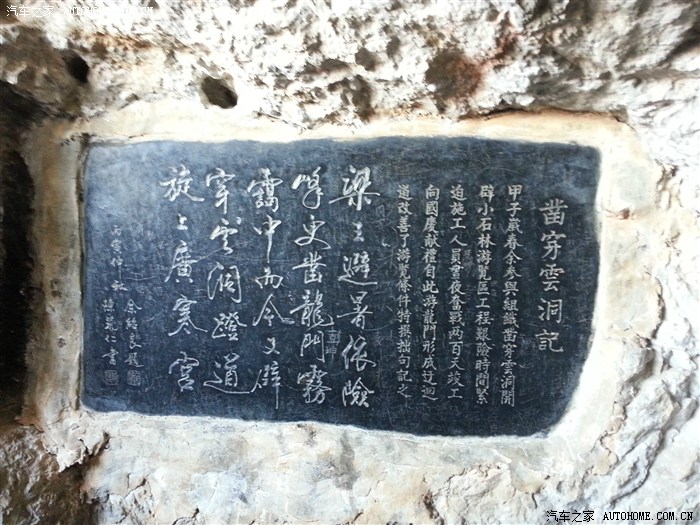 汽车之家 AUTOHOME.COM.CN
凿穿雲洞記
甲子歲春余參與組織凿穿雲洞開
辟小石林游覽區工程艱險時間緊
迫施工人員晝夜奮戰两百天竣工
向國慶献禮自此游龍門形成迂迴
道改善了游覽條件特撰拙句記之
梁王避暑依險
峰史凿龍門霧
靄中而今又辟
穿雲洞蹬道
旋上廣寒宮
仲秋
余紹 題
仁書
汽车之家 AUTOHOME.COM.CN